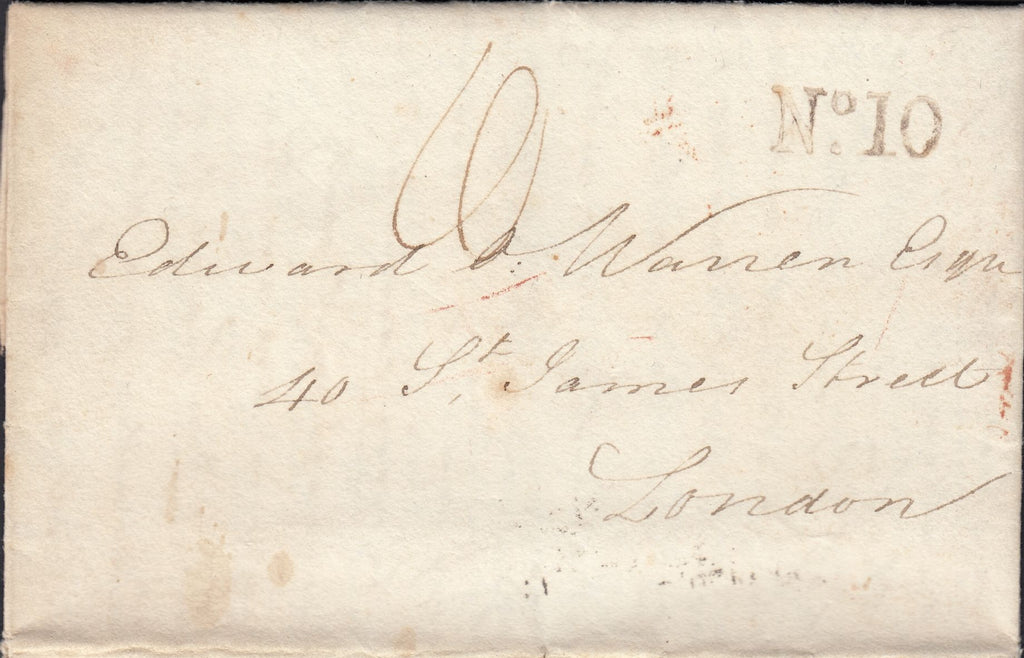 6
No. 10
Edward D. Warren Esqre
40 St. James Street
London